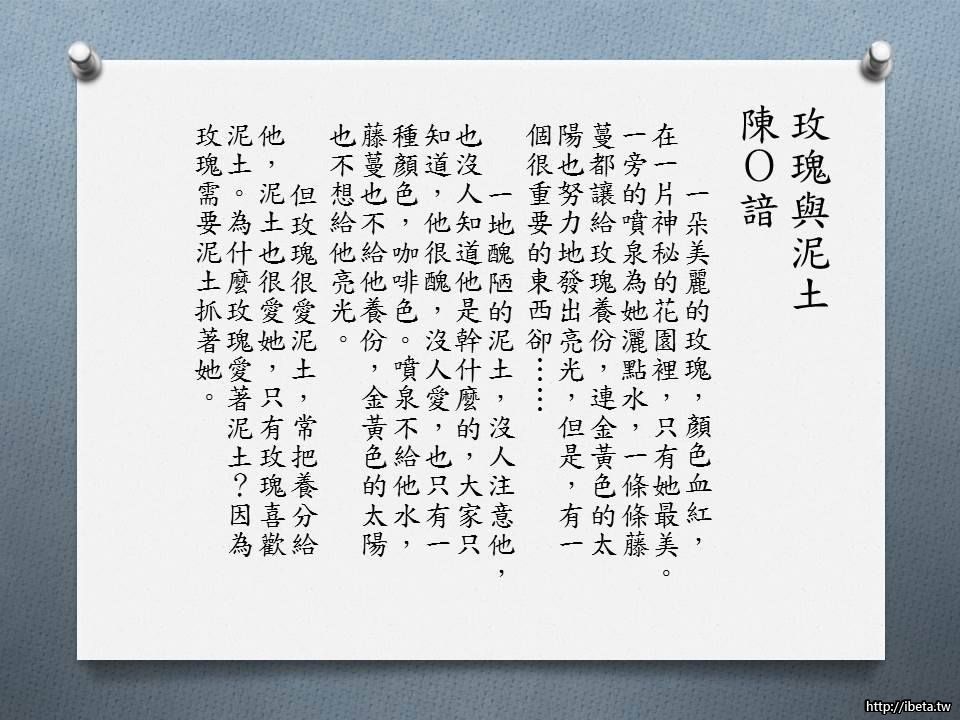 玫瑰與泥土
陳O諳
一朵美麗的玫瑰，顏色血紅，
在一片神秘的花園裡，只有她最美。
一旁的噴泉為她灑點水，一條條藤
蔓都讓給玫瑰養份，連金黃色的太
陽也努力地發出亮光，但是，有一
個很重要的東西卻……
一地醜陋的泥土，沒人注意他，
也沒人知道他是幹什麼的，大家只
知道，他很醜，沒人愛，也只有一
種顏色，咖啡色。噴泉不給他水，
藤蔓也不給他養份，金黃色的太陽
也不想給他亮光。
但玫瑰很愛泥土，常把養分給
他，泥土也很愛她，只有玫瑰喜歡
泥土。為什麼玫瑰愛著泥土？因為
玫瑰需要泥土抓著她。
http://ibeta.tw